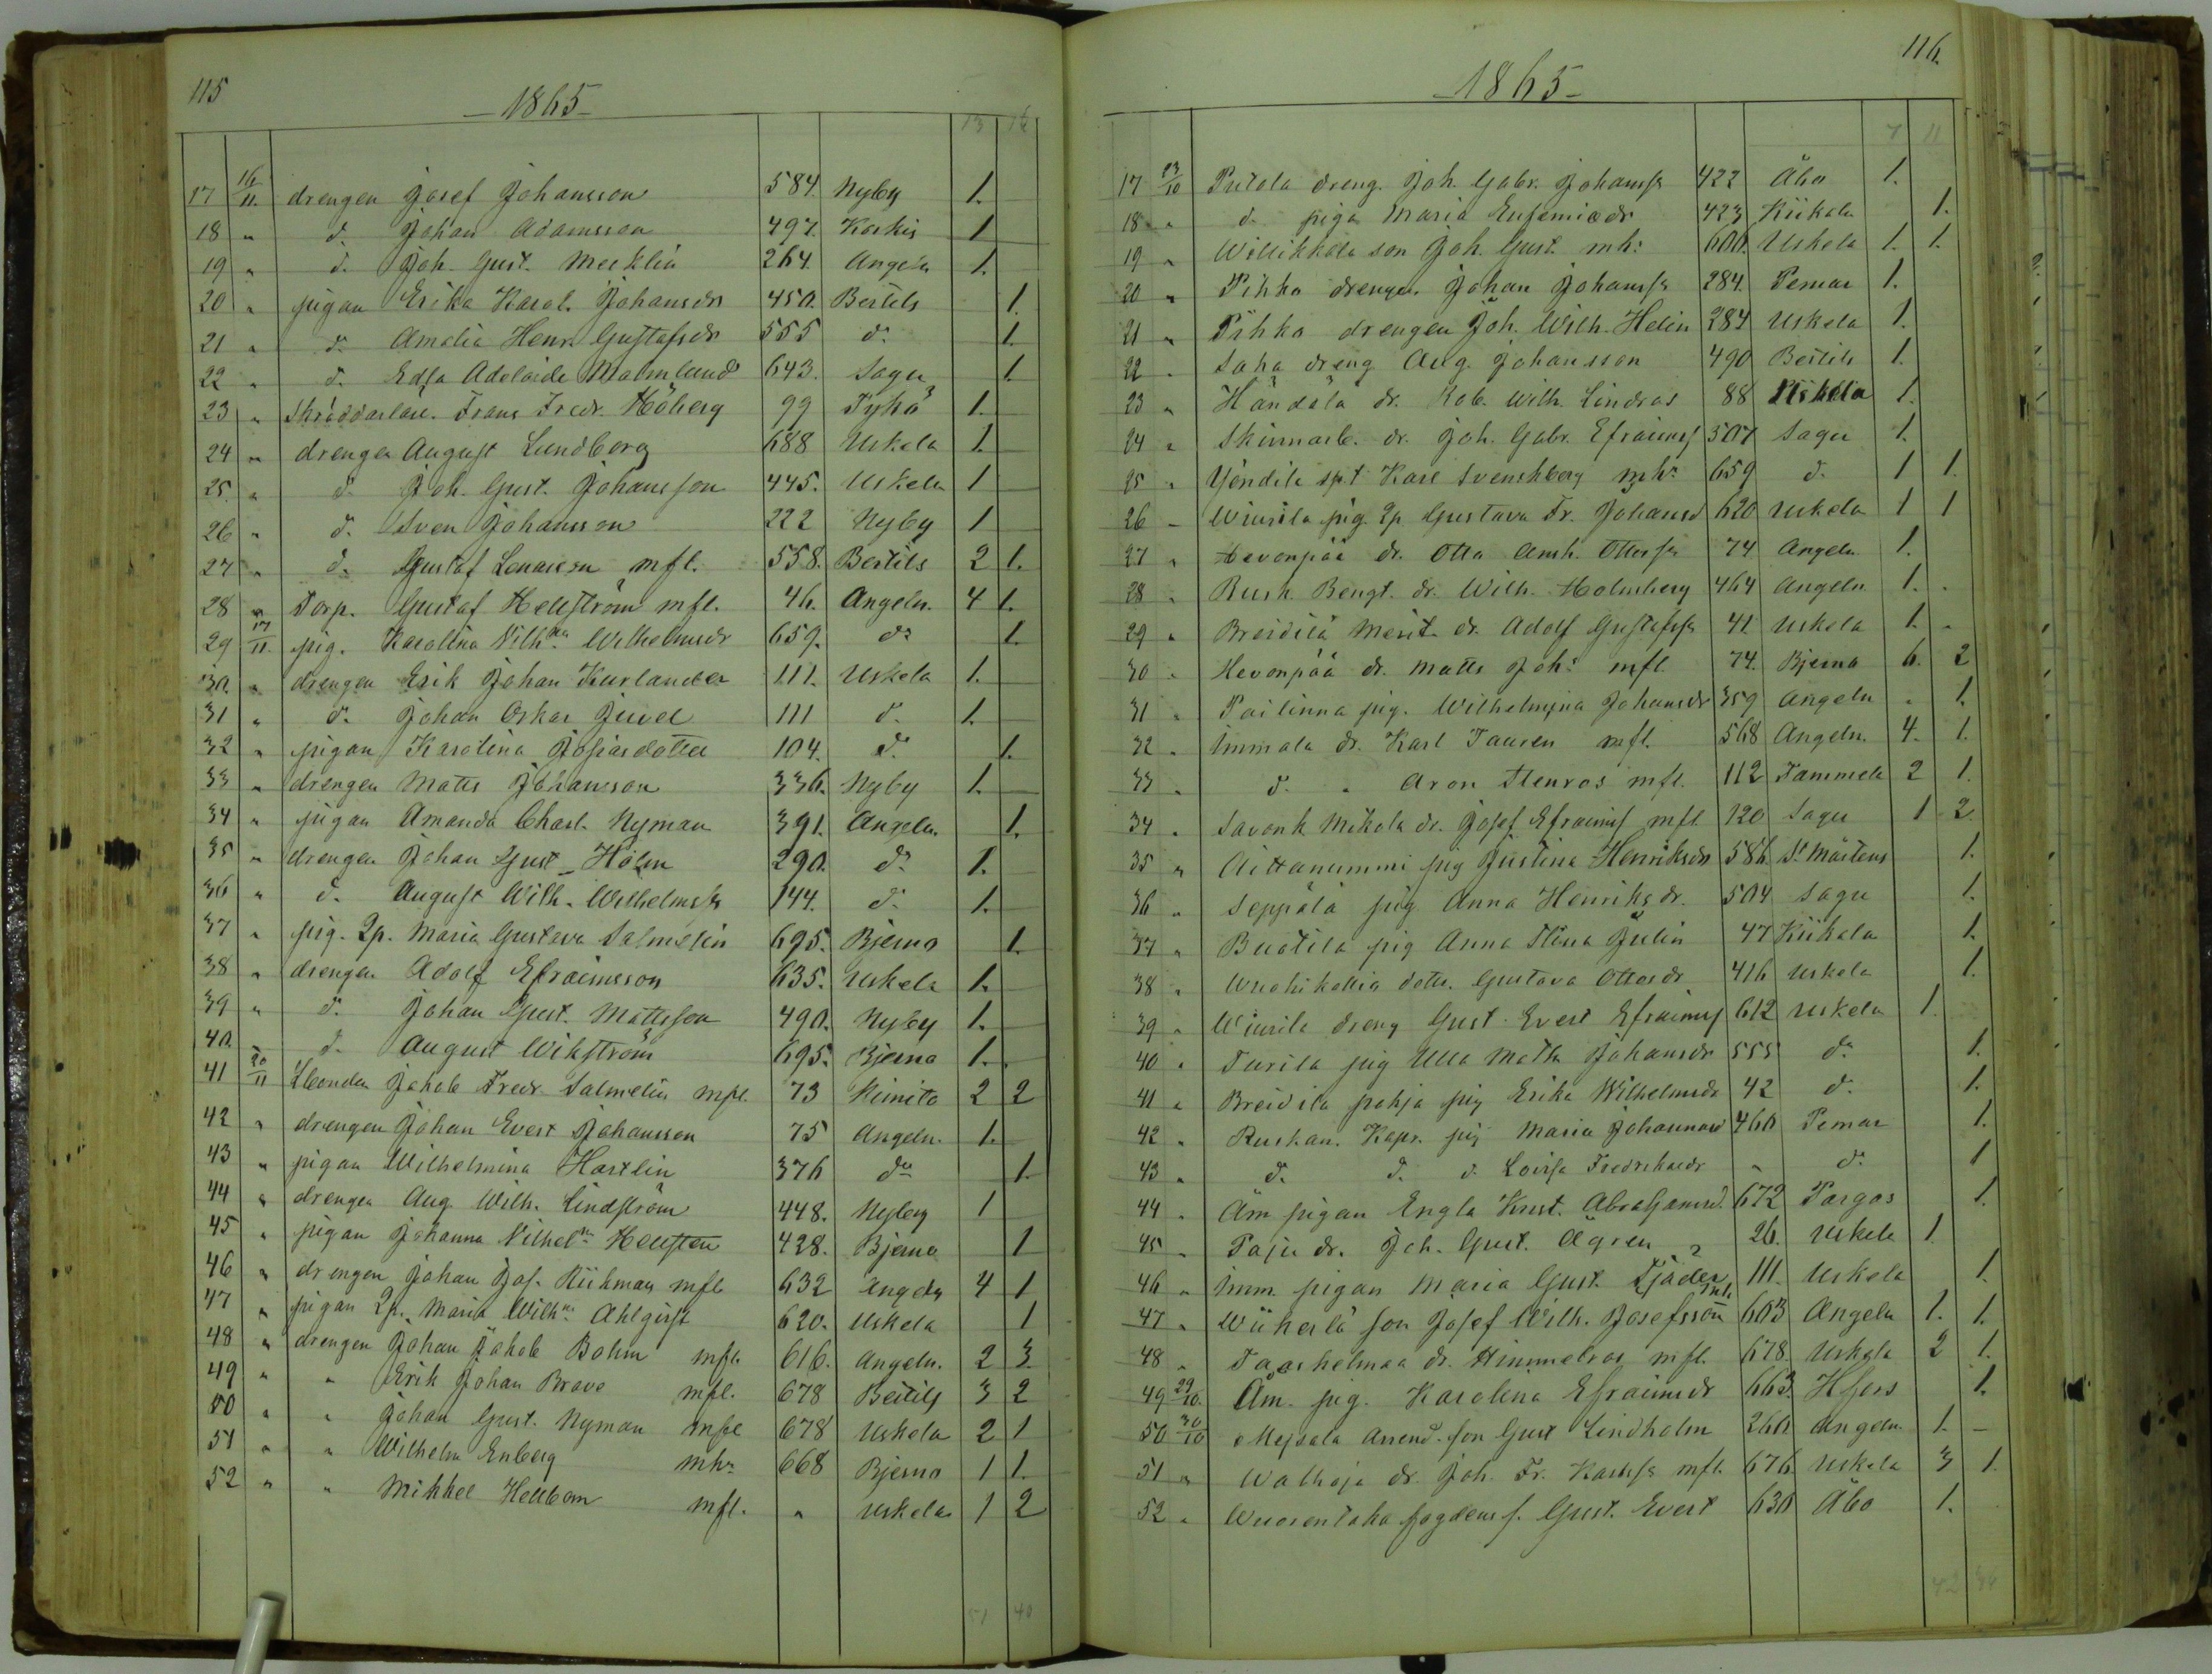 115
-1865-
13 16
17 16/11. drengen Josef Johansson 584. Nyby 1.
18 " d. Johan Adamsson 497. Koskis 1
19 " d. Joh. Gust. Mecklin 264. Angeln 1.
20 " pigan Erika Karol. Johansdr 450. Bertils 1.
21 " d. Amalia Henr. Gustafsdr 555 do 1.
22 " d. Edla Adelaide Malmlund 643. Sagu 1.
23 " Skräddarlärl. Frans Fredr. Höberg 99 Tykö 1.
24 " drengen August Lundborg 688 Uskela 1.
25. " d. Joh. Gust. Johansson 445. Uskela 1
26 " d. Sven Johansson 222 Nyby 1
27 " d. Gustaf mfl. 558. Bertils 2 1.
28 " Torp. Gustaf Hellström mfl. 46. Angeln. 4 1.
29 17/11. pig. Karolina Vilhna Wilhelmsdr 659. do 1.
30. " drengen Erik Johan Kurlander 111. Uskela 1.
31 " d. Johan Oskar Juvel 111 d. 1.
32 " pigan Karolina Josiasdotter 104. d. 1.
33 " drengen Matts Johansson 336. Nyby 1.
34 " pigan Amanda Charl. Nyman 391. Angeln. 1.
35 " drengen Johan Gust. Holm 290. do 1.
36 " d. August Wilh. Wilhelmss 144. d. 1.
37 " pig. Qp. Maria Gustava Salmelin 695. Bjerno 1.
38 " drengen Adolf Efraimsson 635. Uskela 1.
39 " d. Johan Gust. Mattsson 490. Nyby 1.
40. " d. August Wikström 695. Bjerna 1.
41 20/11 Jakob Fredr. Salmelin mfl. 73 Kimito 2 2
42 " drengen Johan Evert Johansson 75 Angeln. 1.
43 " pigan Wilhelmina Hartlin 376 do 1.
44 " drengen Aug. Wilh. Lindström 448. Nyby 1
45 " pigan Johanna Vilhelna Hellsten 428. Bjerna 1
46 " drengen Johan Jos. Kiihman mfl 632 Angeln 4 1
47 " pigan Qp. Maria Wilhna Ahlqvist 620. Uskela 1
48 " drengen Johan Jakob Bohm mfl. 616. Angeln. 2 3
49 " " Erik Johan Brave mfl. 678 Bertils 3 2
50 " " Johan Gust. Nyman mfl 678 Uskela 2 1
51 " " Wilhelm Enberg mh: 668 Bjerno 1 1.
52 " " Mikkel Hellbom mfl. " Uskela 1 2
51 40
116.
-1865-
7 11
17 23/10 Putola dreng. Joh. Gabr. Johanss 422 Åbo 1.
18 " d. piga Maria Eufemiædr 423 Kiikala 1.
19 " Willikkala son Joh. Gust. mh: 600. Uskela 1. 1.
20 " Pihka drengen Johan Johanss 284. Pemar 1.
21 " Pihka drengen Joh. Wilh. Helin 284 Uskela 1.
22 " Saha dreng Aug. Johansson 490 Bertils 1.
23 " Händälä dr. Rob. Wilh. Lindros 88 1.
24 " Skinnarb. dr. Joh. Gabr. Efraims 507 Sagu 1.
25 " Yöndilä spt Karl Svenskberg mhr 659 d. 1 1.
26 - Wiurila pig. Qp Gustava Fr. Johansd 620 Uskela 1 1
27 " Hevonpää dr. Otto Amh. Ottoss 74 Angeln 1.
28 " Rusk. Bengt. dr. Wilh. Holmberg 464 Angeln 1. .
29 " Breidilä Merit. dr. Adolf Gustafss 41 Uskela 1. .
30 " Hevonpää dr. Matts Joh: mfl 74. Bjerna 6. 2
31 " Pailinna pig. Wilhelmina Johansdr 359 Angeln . 1.
32 " Immala dr. Karl Tauren mfl. 568 Angeln. 4. 1.
33 " d. " Aron Stenros mfl. 112 Tammela 2 1.
34 " Savonk Mikola dr. Josef Efraims mfl 120 Sagu 1 2
35 " Aittanummi pig Justina Henriksdr 586 St Mårtens 1.
36 " Seppälä pig Anna Henriksdr. 504 Sagu 1.
37 " Buotila pig Anna Stina Julin 47 Kiikala 1.
38 " Wuohikallio dottr. Gustava Ottosdr 416 Uskela 1.
39 " Wiurila dreng Gust. Evert Efraims 612 Uskela 1.
40 " Turila pig Ulla Math Johansdr 555 do 1.
41 " Breidila pohja pig Erika Wilhelmsdr 42 d. 1.
42 " Ruskan. Kapr. pig Maria Johannasd 460 Pemar 1.
43 " d. d. d. Lovisa Fredriksdr " d. 1
44 " Äm pigan Engla Krist. Abrahamsd. 672 Pargas 1.
45 " Paju dr. Joh. Gust. Ågren 26. Uskela 1
46 " Imm. pigan Maria Gust. Tjäder 111. Uskela 1.
47 " Wiikerlä son Josef Wilh. Josefsson mh 603 Angeln 1. 1.
48 " Taarhelmaa dr. Himmelros mfl. 678. Uskela 2 1.
49 29/10. Äm. pig. Karolina Efraimsdr 663. Hfors 1.
50 30/10 Mejsala arrend. son Gust Lindholm 260 Angeln 1. -
51 " Walhoja dr. Joh. Fr. Karlss mfl. 676 Uskela 3 1.
52 " Wuorentaka fogdens s. Gust. Evert 630 Åbo 1.
42 30